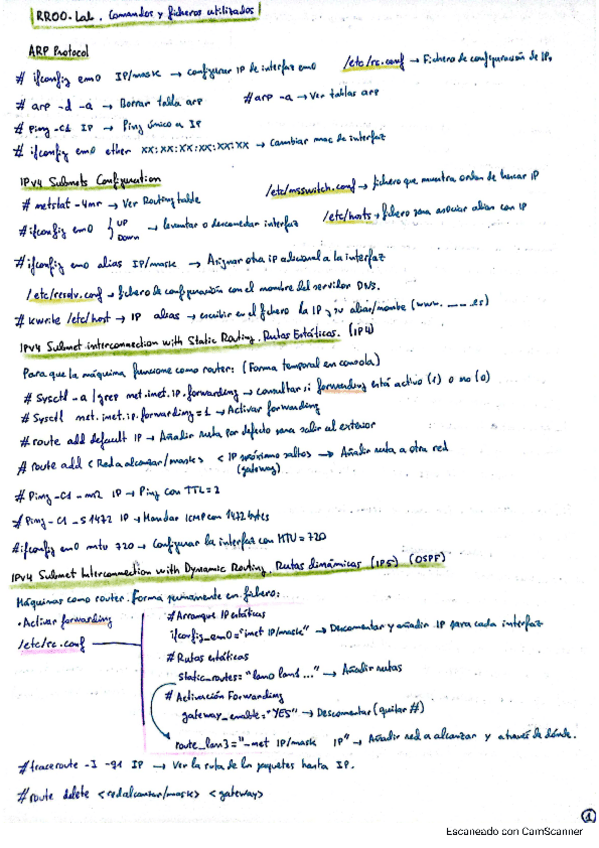 RROO-Lab. Comandos y ficheros utilizados
ARP Protocol
# ifconfig em0 IP/mask → configurar IP de interfaz em0 /etc/rc.conf → Fichero de configuración de IP.
# arp -d -a → Borrar tabla arp #arp -a → Ver tablas arp
# Ping -c1 IP → Ping único a IP
# ifconfig em0 ether xx:xx:xx:xx:xx:xx → Cambiar mac de interfaz
IPv4 Subnets Configuration
# netstat -4nr → Ver Routing table /etc/nsswitch.conf → fichero que muestra orden de buscar IP
#ifconfig em0 { UP Down → levantar o desconectar interfaz /etc/hosts → fichero para asociar alias con IP
#ifconfig em0 alias IP/mask → Asignar otra ip adicional a la interfaz
/etc/resolv.conf → fichero de configuración con el nombre del servidor DNS.
# kwrite /etc/host → IP alias → escribir en el fichero la IP y su alias/nombre (www. ___ .es)
IPv4 Subnet interconnection with Static Routing. Rutas Estáticas. (IP4)
Para que la máquina funcione como router: (Forma temporal en consola)
# Sysctl -a | grep net.inet.ip.forwarding → consultar si forwarding está activo (1) o no (0)
# Sysctl net.inet.ip.forwarding=1 → Activar forwarding
# route add default IP → Añadir ruta por defecto para salir al exterior
# route add <Red a alcanzar/mask> <IP próximo salto> → Añadir ruta a otra red
(gateway)
# Ping -c1 -m2 IP → Ping con TTL=2
# Ping -c1 -s 1472 IP → Mandar ICMP con 1472 bytes
#ifconfig em0 mtu 720 → Configurar la interfaz con MTU = 720
IPv4 Subnet Interconnection with Dynamic Routing. Rutas dinámicas (IP5) (OSPF)
Máquinas como router. Forma permanente en fichero:
• Activar forwarding
/etc/rc.conf
# Arranque IP estáticas
ifconfig_em0="inet IP/mask" → Descomentar y añadir IP para cada interfaz
# Rutas estáticas
static_routes="lan0 lan1..." → Añadir rutas
# Activación Forwarding
gateway_enable="YES" → Descomentar (quitar #)
route_lan3="-net IP/mask IP" → Añadir red a alcanzar y a través de dónde.
#traceroute -I -q1 IP → Ver la ruta de los paquetes hasta IP.
#route delete <red alcanzar/mask> <gateway>
1
Escaneado con CamScanner